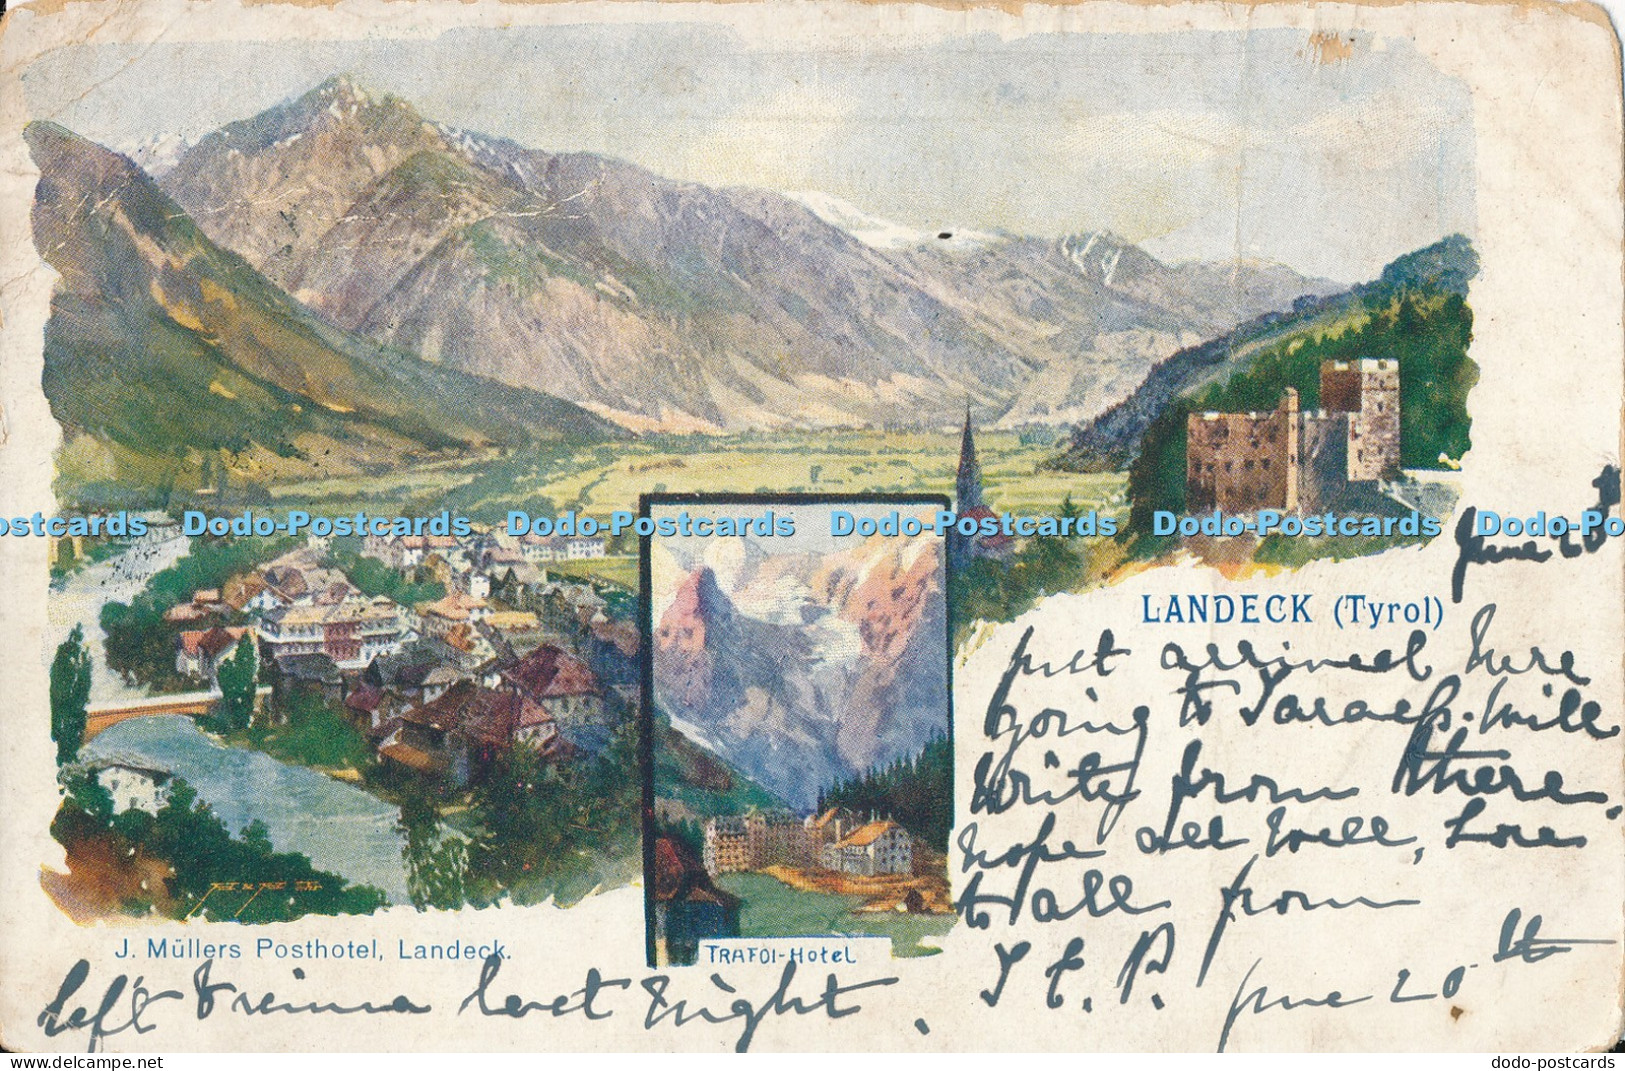 Dodo-Postcards Dodo-Postcards Dodo-Postcards Dodo-Postcards Dodo-Postcards Dodo-Postcards
June 20th
LANDECK (Tyrol)
just arrived here
going to Will
write from there.
hope all well, Love
to all from
June 20th
J. Müllers Posthotel, Landeck.
TRAFOI-HOTEL
left Vienna last night.
dodo-postcards.com
dodo-postcards